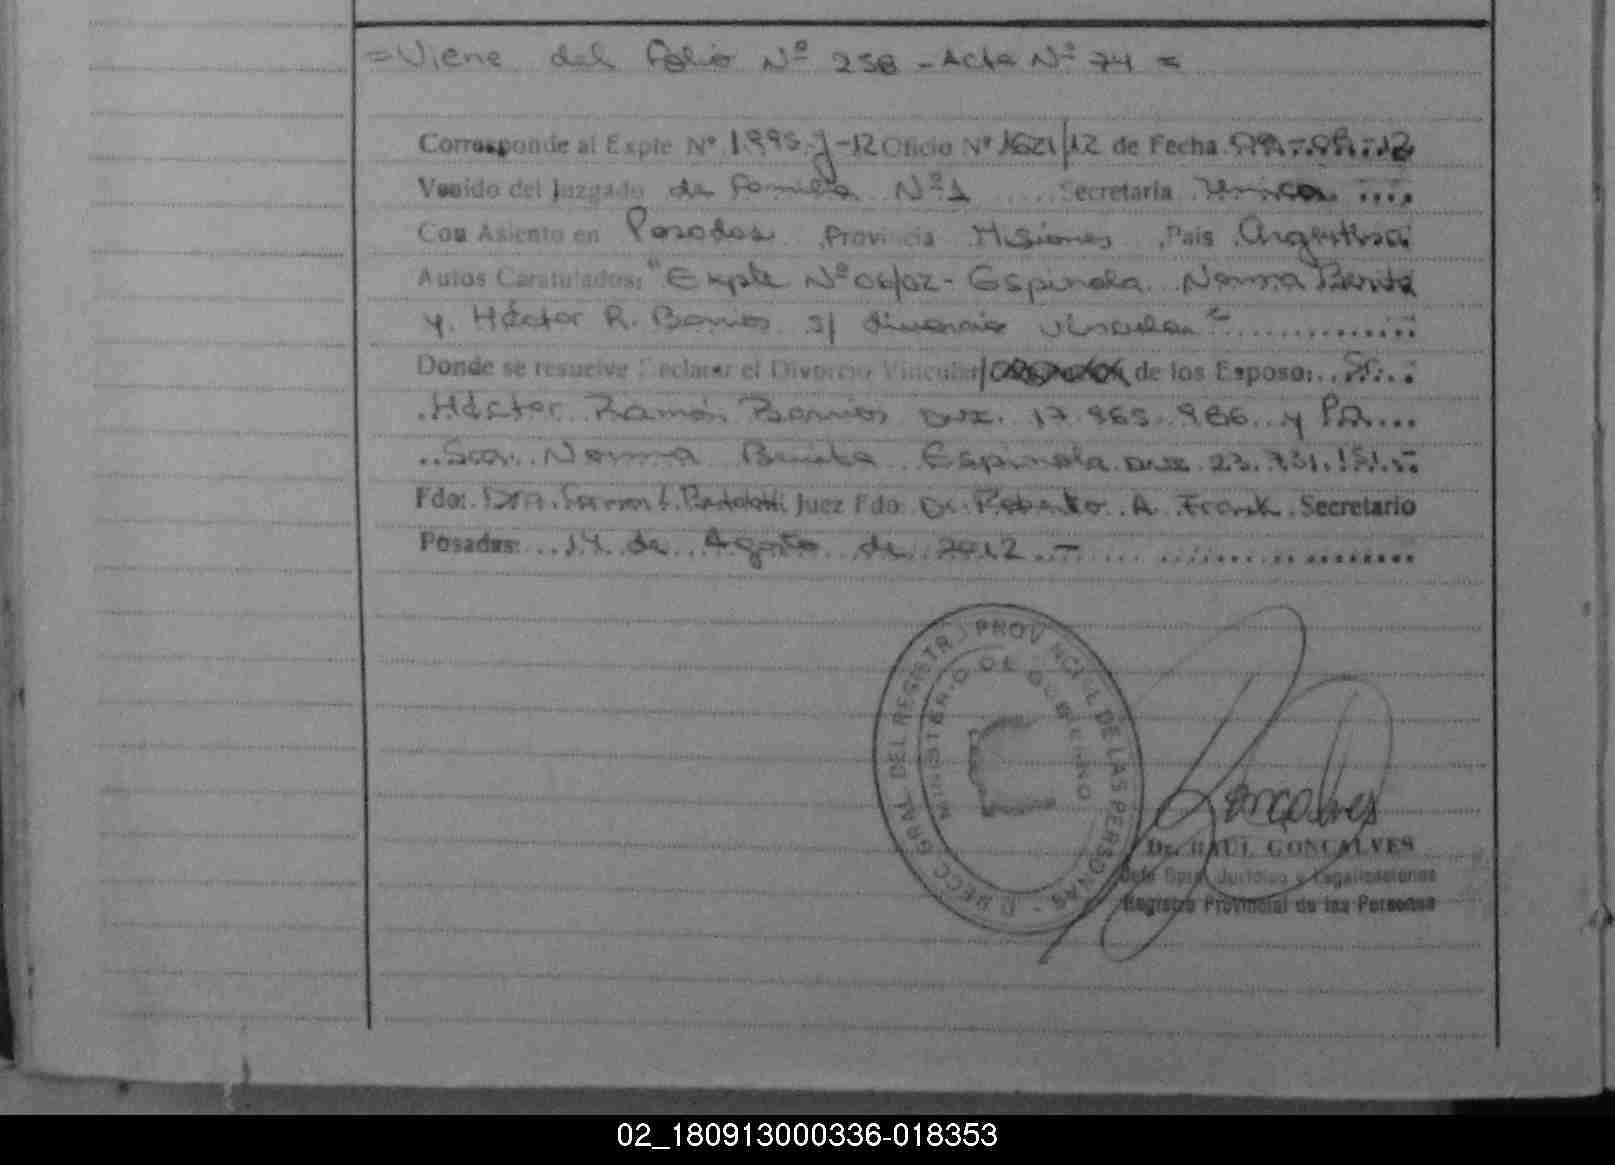 = Viene del folio Nº 258 - Acta Nº 74 =
Corresponde al Expte Nº 1995-J-12 Oficio Nº 1621/12 de Fecha
Venido del Juzgado de Familia Nº 1 .... Secretaria Unica ....
Con Asiento en Posadas Provincia Misiones País Argentina
Autos Caratulados: "Expte Nº 06/02 - Espinola Norma Benita
y Héctor R. Barrios s/ divorcio vincular" ..............
Donde se resuelve Declarar el Divorcio Vincular/ de los Esposo: .. Sr. ..
Héctor Ramón Barrios DNI. 17.965.986 y la ...
.. Sra. Norma Benita Espinola DNI 23.731.151.-
Fdo: Dra. Juez Fdo: Dr. Roberto A. Frank Secretario
Posadas: ... 14 de Agosto de 2012.-
DIRECC. GRAL. DEL REGISTRO PROVINCIAL DE LAS PERSONAS -
MINISTERIO DE GOBIERNO
Goncalves
Dr. RAUL GONCALVES
Jefe Dpto. Jurídico y Legalizaciones
Registro Provincial de las Personas
02_180913000336-018353